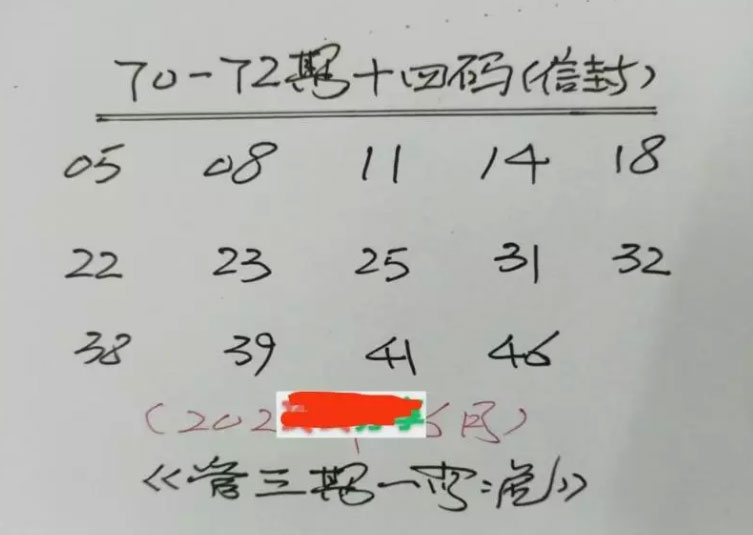 70-72期十四码(信封)
05 08 11 14 18
22 23 25 31 32
38 39 41 46
(202 6月)
《管三期一